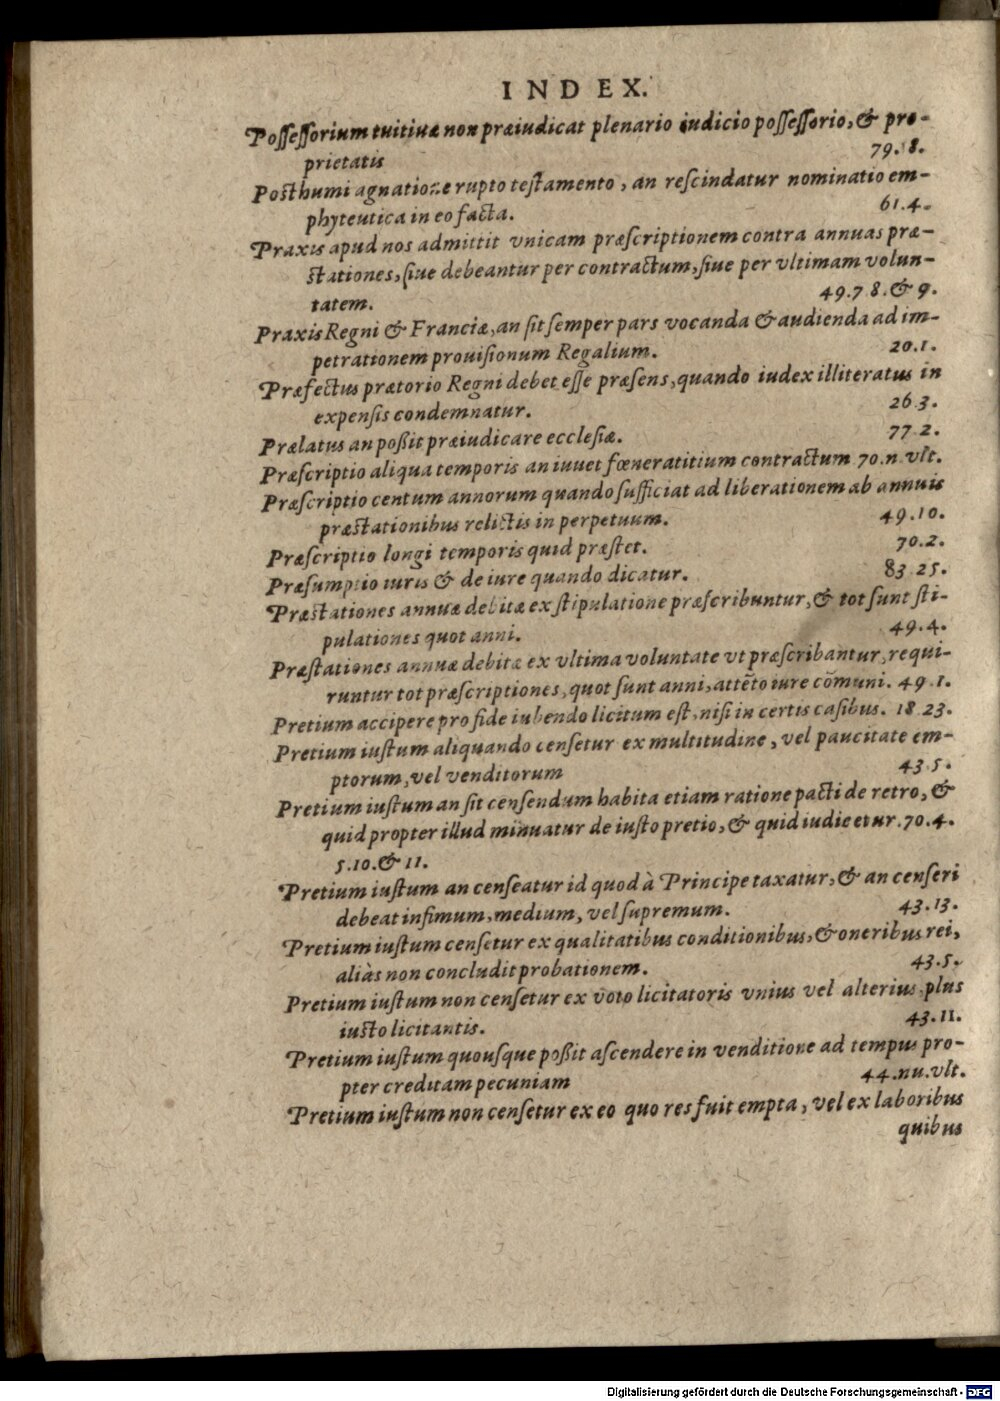 INDEX.
Possessorium tuitiuæ non præiudicat plenario iudicio possessorio, & pro-
prietatis 79. 8.
Posthumi agnatione rupto testamento, an rescindatur nominatio em-
phyteutica in eo facta. 61.4.
Praxis apud nos admittit vnicam præscriptionem contra annuas præ-
stationes, siue debeantur per contractum, siue per vltimam volun-
tatem. 49.7 8.& 9.
Praxis Regni & Franciæ, an sit semper pars vocanda & audienda ad im-
petrationem prouisionum Regalium. 20.1.
Præfectus prætorio Regni debet esse præsens, quando iudex illiteratus in
expensis condemnatur. 26 3.
Prælatus an poßit præiudicare ecclesiæ. 77 2.
Præscriptio aliqua temporis an iuuet fœneratitium contractum 70.n vlt.
Præscriptio centum annorum quando sufficiat ad liberationem ab annuis
præstationibus relictis in perpetuum. 49.10.
Præscriptio longi temporis quid præstet. 70.2.
Præsumptio iuris & de iure quando dicatur. 83 25.
Præstationes annuæ debitæ ex stipulatione præscribuntur, & tot sunt sti-
pulationes quot anni. 49.4.
Præstationes annuæ debitæ ex vltima voluntate vt præscribantur, requi-
runtur tot præscriptiones, quot sunt anni, attẽto iure cõmuni. 49.1.
Pretium accipere pro fide iubendo licitum est, nisi in certis casibus. 18 23.
Pretium iustum aliquando censetur ex multitudine, vel paucitate em-
ptorum, vel venditorum 43 5.
Pretium iustum an sit censendum habita etiam ratione pacti de retro, &
quid propter illud minuatur de iusto pretio, & quid iudicetur. 70.4.
5.10.& 11.
Pretium iustum an censeatur id quod à Principe taxatur, & an censeri
debeat infimum, medium, vel supremum. 43.13.
Pretium iustum censetur ex qualitatibus conditionibus, & oneribus rei,
aliàs non concludit probationem. 43.5.
Pretium iustum non censetur ex voto licitatoris vnius vel alterius plus
iusto licitantis. 43.11.
Pretium iustum quousque poßit ascendere in venditione ad tempus pro-
pter creditam pecuniam 44.nu.vlt.
Pretium iustum non censetur ex eo quo res fuit empta, vel ex laboribus
quibus
Digitalisierung gefördert durch die Deutsche Forschungsgemeinschaft - DFG